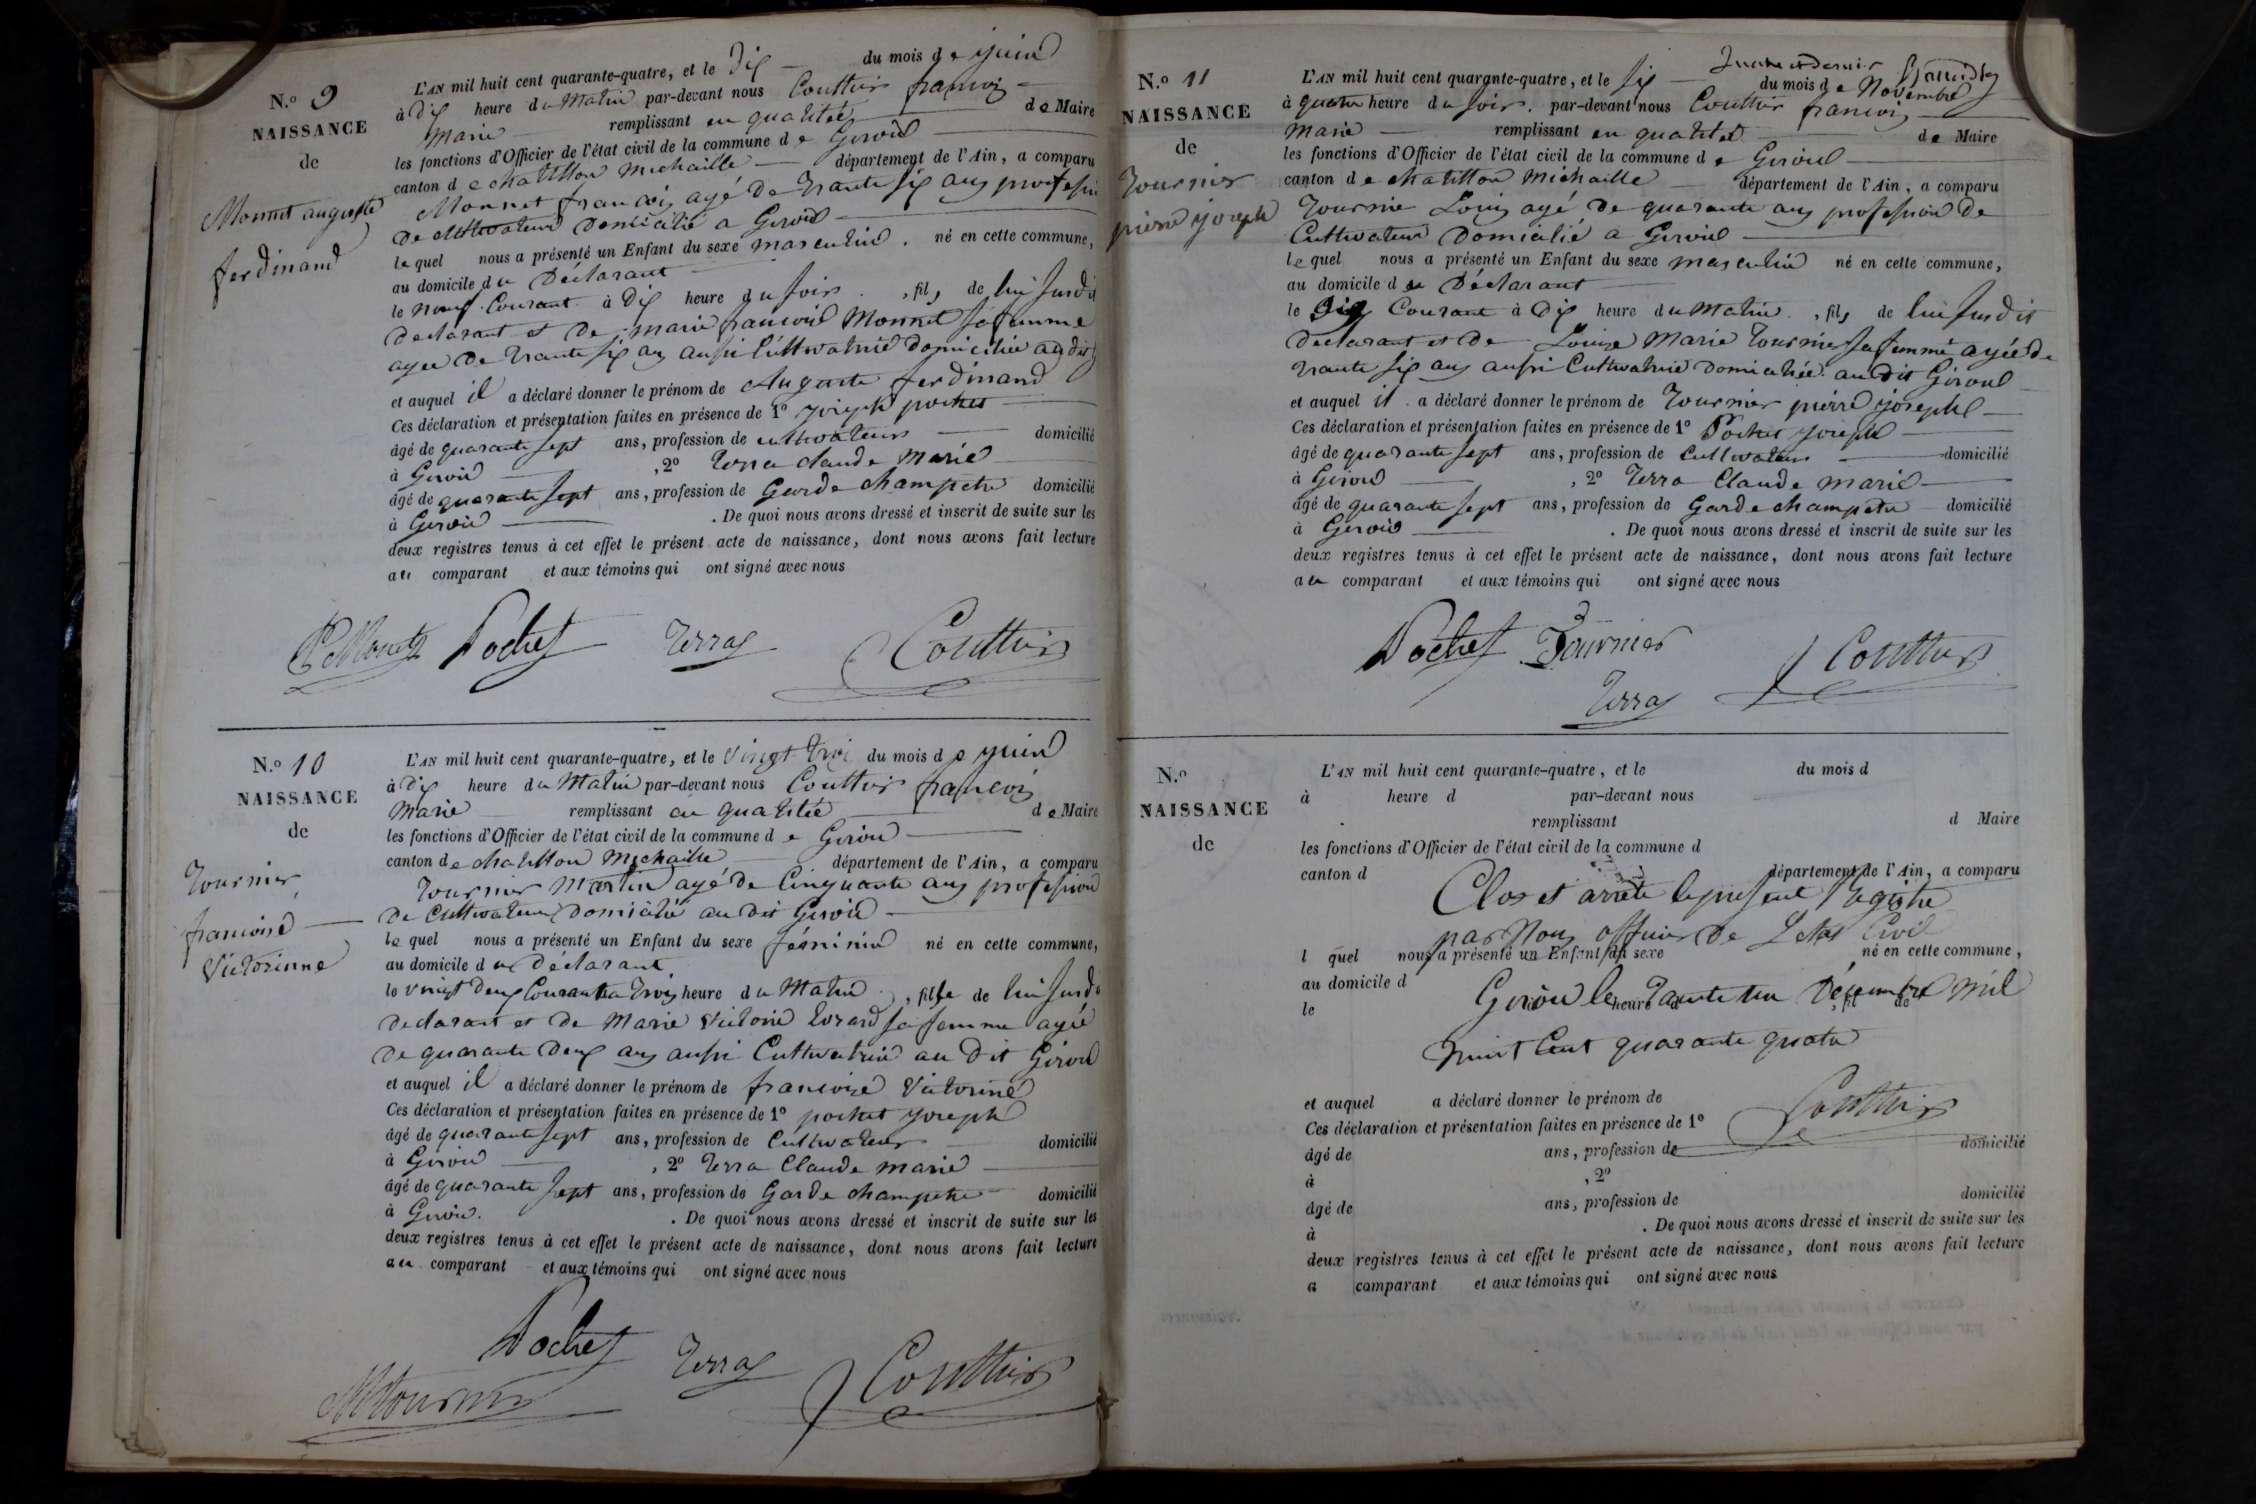 N.o 9
NAISSANCE
de
Monnet auguste
ferdinand
L'AN mil huit cent quarante-quatre, et le dix du mois de juin
à dix heure du Matin par-devant nous Couttier francois
Marie remplissant en qualitée de Maire
les fonctions d'Officier de l'état civil de la commune de Giroud
canton de chatillon Michaille département de l'Ain, a comparu
Monnet francois agé de trante six ans profession
de cultivateur domicilié a Giroud
le quel nous a présenté un Enfant du sexe masculin. né en cette commune,
au domicile du Déclarant
le neuf Courant à dix heure du soir. , fils de lui susdit
declarant et de marie francoise Monnet sa femme
agee de trante six ans aussi Cultivatrice domiciliée au dit
et auquel il a déclaré donner le prénom de Auguste ferdinand
Ces déclaration et présentation faites en présence de 1o joseph pochet
âgé de quarante sept ans, profession de cultivateur domicilié
à Giroud , 2o Terra claude Marie
âgé de quarante sept ans, profession de Garde champetre domicilié
à Giroud . De quoi nous avons dressé et inscrit de suite sur les
deux registres tenus à cet effet le présent acte de naissance, dont nous avons fait lecture
au comparant et aux témoins qui ont signé avec nous
Pochet Terraz Couttier
N.o 10
NAISSANCE
de
Tournier
francoise
Victorinne
L'AN mil huit cent quarante-quatre, et le vingt trois du mois de juin
à dix heure du Matin par-devant nous Couttier francois
Marie remplissant en qualitée de Maire
les fonctions d'Officier de l'état civil de la commune de Giroud
canton de chatillon Michaille département de l'Ain, a comparu
Tournier Martin agé de Cinquante ans profession
de Cultivateur domicilié au dit Giroud
le quel nous a présenté un Enfant du sexe féminin né en cette commune,
au domicile du déclarant
le vingt deux Courant à trois heure du Matin , fille de lui susdit
declarant et de Marie Victoire Evrard sa femme agée
de quarante deux ans aussi Cultivatrice au dit Giroud
et auquel il a déclaré donner le prénom de francoise Victorine
Ces déclaration et présentation faites en présence de 1o pochet joseph
âgé de quarante sept ans, profession de Cultivateur domicilié
à Giroud , 2o Terra Claude marie
âgé de quarante sept ans, profession de Garde champetre domicilié
à Giroud. . De quoi nous avons dressé et inscrit de suite sur les
deux registres tenus à cet effet le présent acte de naissance, dont nous avons fait lecture
au comparant et aux témoins qui ont signé avec nous
Pochet Terraz Couttier
Mtournier
N.o 11
NAISSANCE
de
Tournier
pierre joseph
L'AN mil huit cent quarante-quatre, et le six du mois de Novembre
à quatre heure du soir. par-devant nous Couttier francois
Marie remplissant en qualitet de Maire
les fonctions d'Officier de l'état civil de la commune de Giroud
canton de chatillon Michaille département de l'Ain, a comparu
Tournie Louis agé de quarante ans profession de
Cultivateur domicilié a Giroud
le quel nous a présenté un Enfant du sexe masculin né en cette commune,
au domicile du Déclarant
le six Courant à dix heure du Matin. , fils de lui susdit
declarant et de Louise Marie Tournier sa femme agée de
trante six ans aussi Cultivatrice domiciliée au dit Giroud
et auquel il a déclaré donner le prénom de Tournier pierre joseph
Ces déclaration et présentation faites en présence de 1o Pochet joseph
âgé de quarante sept ans, profession de Cultivateur domicilié
à Giroud , 2o Terra Claude marie
âgé de quarante sept ans, profession de Garde champetre domicilié
à Giroud . De quoi nous avons dressé et inscrit de suite sur les
deux registres tenus à cet effet le présent acte de naissance, dont nous avons fait lecture
au comparant et aux témoins qui ont signé avec nous
Pochet Tournier Couttier
Terraz
N.o
NAISSANCE
de
L'AN mil huit cent quarante-quatre, et le du mois d
à heure d par-devant nous
remplissant d Maire
les fonctions d'Officier de l'état civil de la commune d
canton d département de l'Ain, a comparu
Clos et arrete le present Registre
par Nous officier de Letat Civil
l quel nous a présenté un Enfant du sexe né en cette commune,
au domicile d
Giroud le trante un décembre mil
le heure d , fil de
huit Cent quarante quatre
et auquel a déclaré donner le prénom de
Couttier
Ces déclaration et présentation faites en présence de 1o
âgé de ans, profession de domicilié
à , 2o
âgé de ans, profession de domicilié
à . De quoi nous avons dressé et inscrit de suite sur les
deux registres tenus à cet effet le présent acte de naissance, dont nous avons fait lecture
a comparant et aux témoins qui ont signé avec nous